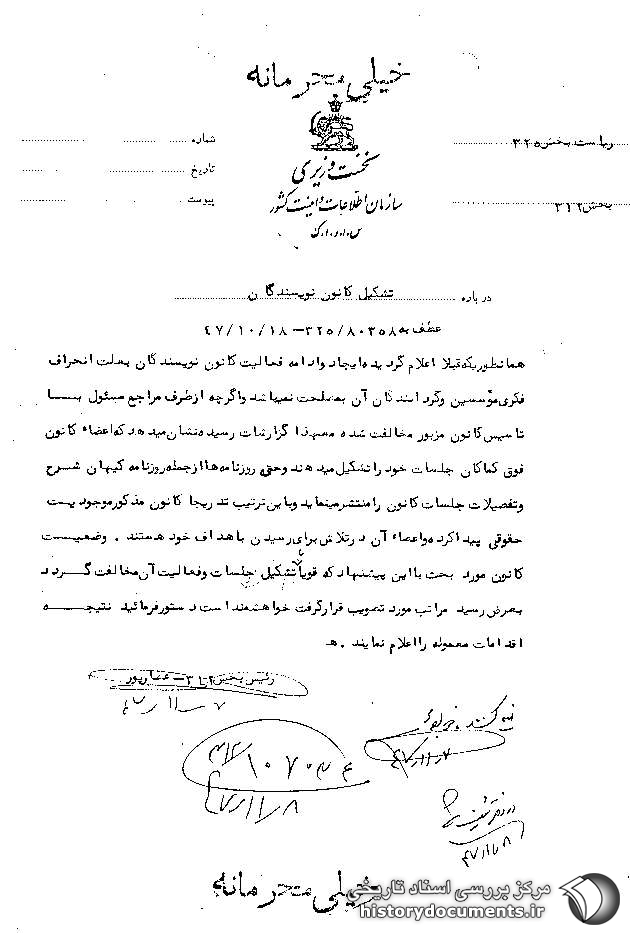 خیلی محرمانه
ریاست بخش ۳۲۵
شماره
نخست وزیری
تاریخ
سازمان اطلاعات و امنیت کشور
بخش ۳۱۲
پیوست
س.ا.و.ا.ک
درباره تشکیل کانون نویسندگان
عطف به ۳۲۵/۸۰۳۵۸ - ۴۷/۱۰/۱۸
همانطوریکه قبلا اعلام گردیده ایجاد وادامه فعالیت کانون نویسندگان بعلت انحراف
فکری مؤسسین وگردانندگان آن بمصلحت نمیباشد واگرچه ازطرف مراجع مسئول با
تاسیس کانون مزبور مخالفت شده معهذا گزارشات رسیده نشان میدهد که اعضاء کانون
فوق کماکان جلسات خود را تشکیل میدهند وحتی روزنامه ها ازجمله روزنامه کیهان شرح
وتفصیلات جلسات کانون را منتشر مینماید وباین ترتیب تدریجا کانون مذکور موجودیت
حقوقی پیدا کرده واعضاء آن درتلاش برای رسیدن باهداف خود هستند . وضعیت
کانون مورد بحث با این پیشنهاد که قویاً با تشکیل جلسات وفعالیت آن مخالفت گردد
بعرض رسید مراتب مورد تصویب قرارگرفت خواهشمند است دستور فرمائید نتیجه
اقدامات معموله را اعلام نمایند . ه
رئیس بخش ۳۱۲ - عطارپور
۴۷/۱۱/۷
۴۷/۱۱/۷
۳۱۲/۱۰۷۰۳۶
۴۷/۱۱/۸
در دفتر ثبت شد
۴۷/۱۱/۸
خیلی محرمانه
مرکز بررسی اسناد تاریخی
historydocuments.ir